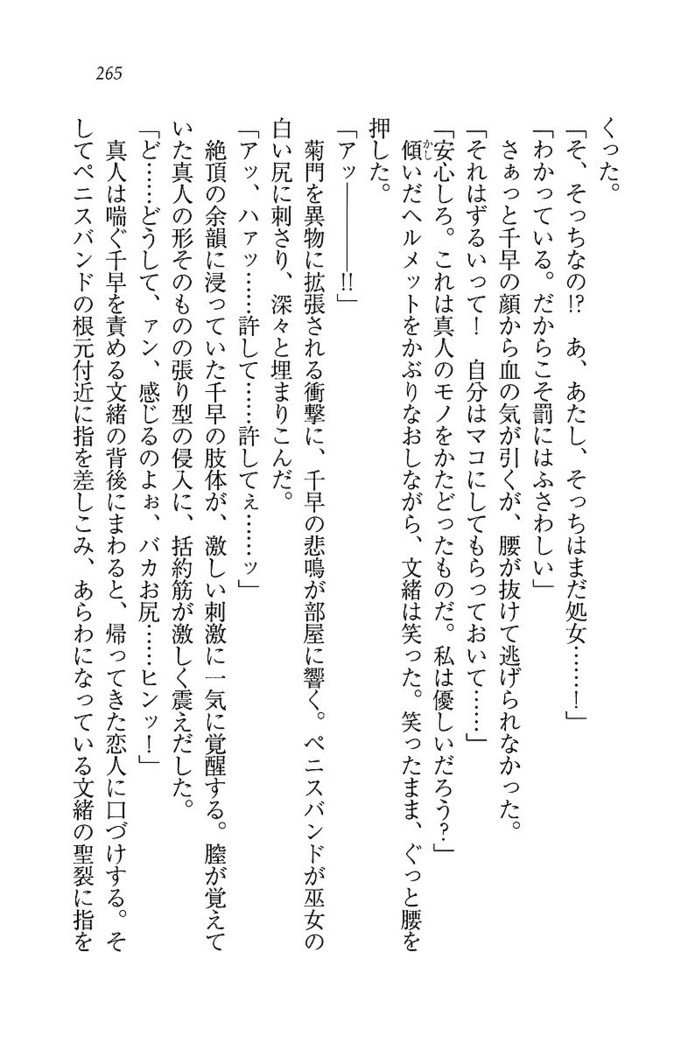 265
くった。
「そ、そっちなの!?　あ、あたし、そっちはまだ処女……！」
「わかっている。だからこそ罰にはふさわしい」
さぁっと千早の顔から血の気が引くが、腰が抜けて逃げられなかった。
「それはずるいって！　自分はマコにしてもらっておいて……」
「安心しろ。これは真人のモノをかたどったものだ。私は優しいだろう？」
傾いだヘルメットをかぶりなおしながら、文緒は笑った。笑ったまま、ぐっと腰を
押した。
「アッ――――!!」
菊門を異物に拡張される衝撃に、千早の悲鳴が部屋に響く。ペニスバンドが巫女の
白い尻に刺さり、深々と埋まりこんだ。
「アッ、ハァッ……許して……許してぇ……ッ」
絶頂の余韻に浸っていた千早の肢体が、激しい刺激に一気に覚醒する。膣が覚えて
いた真人の形そのものの張り型の侵入に、括約筋が激しく震えだした。
「ど……どうして、ァン、感じるのよぉ、バカお尻……ヒンッ！」
真人は喘ぐ千早を責める文緒の背後にまわると、帰ってきた恋人に口づけする。そ
してペニスバンドの根元付近に指を差しこみ、あらわになっている文緒の聖裂に指を